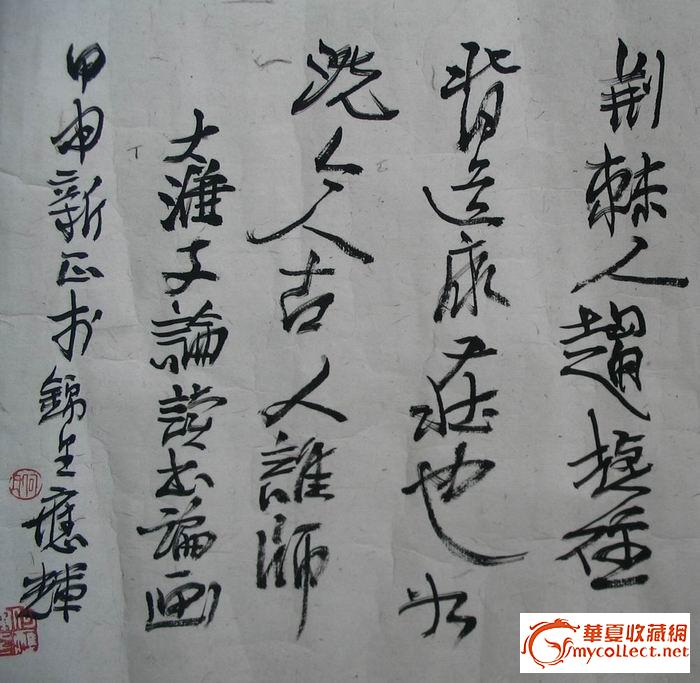 荆棘人趨捷徑
背道康莊也
况人古人誰師
大子論讀书論画
甲申新正书錦生應輝
華夏收藏網
mycollect.net